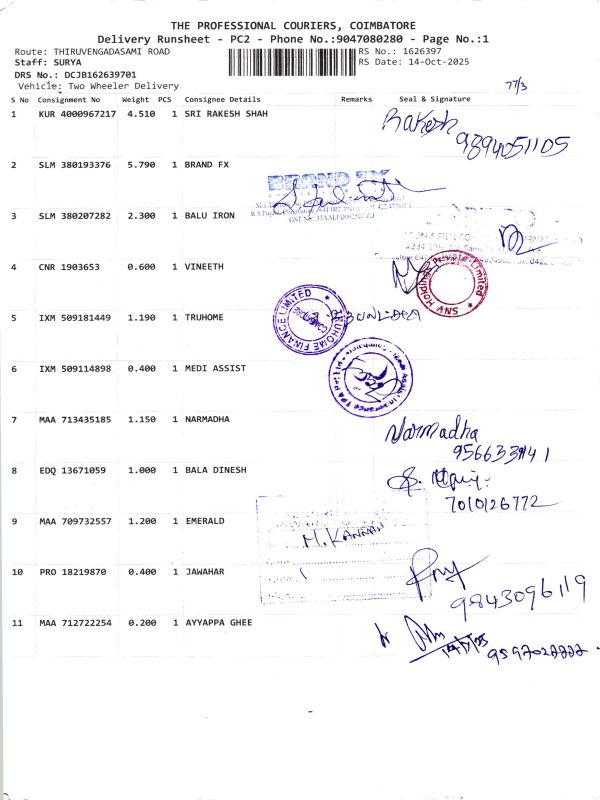 THE PROFESSIONAL COURIERS, COIMBATORE
Delivery Runsheet - PC2 - Phone No.:9047080280 - Page No.:1
Route: THIRUVENGADASAMI ROAD
RS No.: 1626397
Staff: SURYA
RS Date: 14-Oct-2025
DRS No.: DCJB162639701
Vehicle: Two Wheeler Delivery
77/3
S No Consignment No Weight PCS Consignee Details Remarks Seal & Signature
1 KUR 4000967217 4.510 1 SRI RAKESH SHAH
Rakesh
9894051105
2 SLM 380193376 5.790 1 BRAND FX
BRAND FX
3 SLM 380207282 2.300 1 BALU IRON
4 CNR 1903653 0.600 1 VINEETH
SNV Holding Private Limited
5 IXM 509181449 1.190 1 TRUHOME
TRUHOME FINANCE LIMITED
6 IXM 509114898 0.400 1 MEDI ASSIST
7 MAA 713435185 1.150 1 NARMADHA
Narmadha
8 EDQ 13671059 1.000 1 BALA DINESH
7010126772
9 MAA 709732557 1.200 1 EMERALD
M. KANNAN
10 PRO 18219870 0.400 1 JAWAHAR
9843096119
11 MAA 712722254 0.200 1 AYYAPPA GHEE